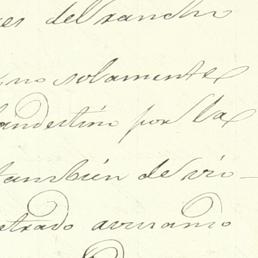 es del rancho
no solamente
landestino por la
tambien de vio-
strado avisando